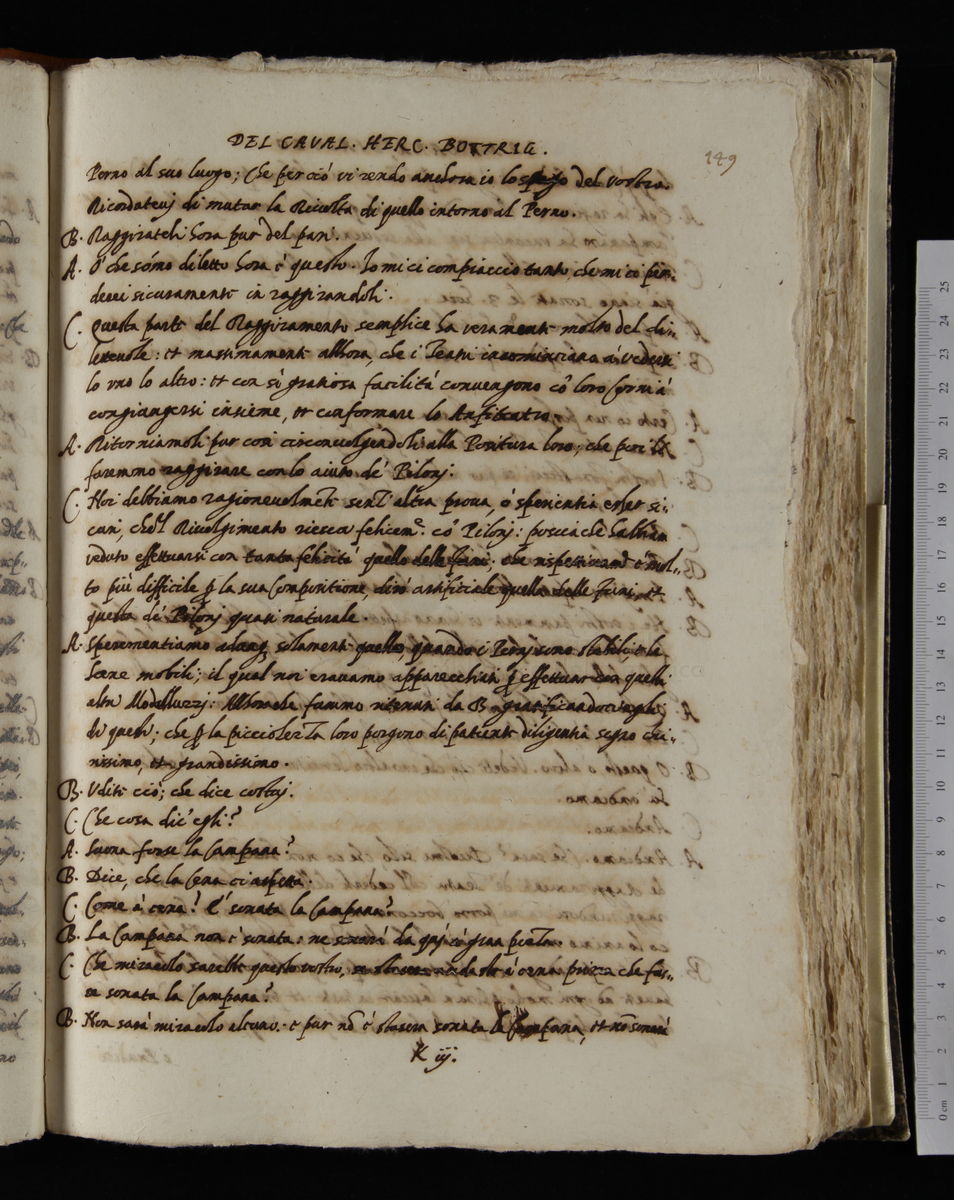 DEL CAVAL. HERC. BOTTRIG.
149
Perno al suo luogo; Che perciò vi rendo anchora io lo del vostro.
Ricordatevi di mutar la Rivolta di quello intorno al Perno.
B. Raggirateli hora pur del pari.
A. O' che sómo diletto hora è questo. Io mi ci compiaccio tanto, che mi ci per,,
derei sicuramente in raggirandoli.
C. Questa parte del Raggiramento semplice ha veramente molto del di,,
lettevole: et massimamente allhora, che i Teatri incominciano à vedersi
lo uno lo altro: et con sì gratiosa facilità convengono có loro à
congiungersi insieme, et conformare lo Anfiteatro.
A. Ritorniamoli pur così circonvolgendoli alla Positura loro; che poi li
faremmo raggirare con lo aiuto de' Pilonj.
C. Noi debbiamo ragionevolmẽte senz' altra prova, ò sperientia esser si,,
curi, che'l Rivolgimento riesca felicemẽ. có Pilonj: poscia che habbiam
veduto effettuarsi con tanta felicità quello delle funi; che rispettivamẽ è mol,,
to più difficile ꝑ la sua Compositione, dirò artificiale quella delle funi, et
questa de' Pilonj quasi naturale.
A. Sperimentiamo adunq̃ solamente quello, quando i Pernj sono stabili, et le
Scene mobili; il qual noi eravamo apparecchiati ꝑ effettuar con quelli
altri Modelluzzi: Allhora che fummo ritenuti da B.
di questi; che ꝑ la picciolezza loro porgono di patiente diligentia segno chi,,
rissimo, et grandissimo.
B. Uditi ciò; che dice costuj.
C. Che cosa dic' egli?
A. Suona forse la Campana?
B. Dice, che la Cena ci aspetta.
C. Come à cena? E' sonata la Campana?
B. La Campana non è sonata: ne sonarà da quj à gran pezzo.
C. Che miracolo sarebbe questo vostro, andaste à cena prima che fus,,
se sonata la Campana?
B. Non sarà miracolo alcuno. e pur nõ è stasera sonata la Campana, et nõ sonarà
K iij.